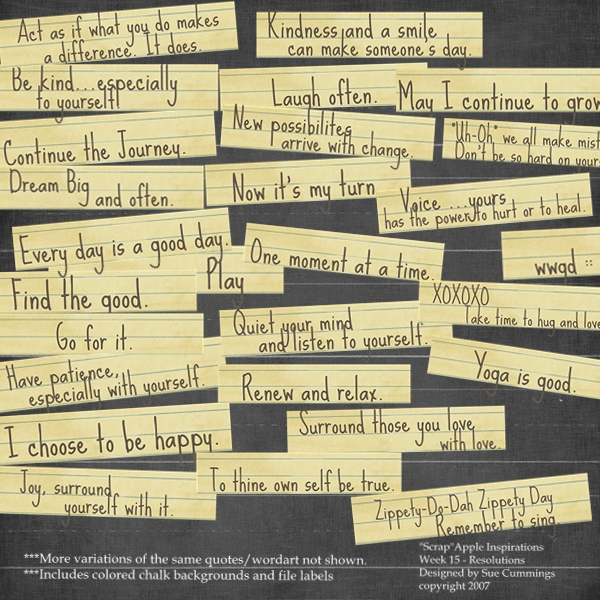 Act as if what you do makes
a difference. It does.
Kindness and a smile
can make someone's day.
Be kind...especially
to yourself!
Laugh often.
May I continue to grow
Continue the Journey.
New possibilites
arrive with change.
"Uh-Oh" we all make mist
Don't be so hard on your
Dream Big
and often.
Now it's my turn
Voice ...yours
has the power to hurt or to heal.
Every day is a good day.
One moment at a time.
wwgd ::
Find the good.
Play
XOXOXO
Take time to hug and love
Go for it.
Quiet your mind
and listen to yourself.
Have patience,
especially with yourself.
Renew and relax.
Yoga is good.
I choose to be happy.
Surround those you love
with love.
Joy, surround
yourself with it.
To thine own self be true.
Zippety-Do-Dah Zippety Day
Remember to sing.
***More variations of the same quotes/wordart not shown.
***Includes colored chalk backgrounds and file labels
"Scrap"Apple Inspirations
Week 15 - Resolutions
Designed by Sue Cummings
copyright 2007